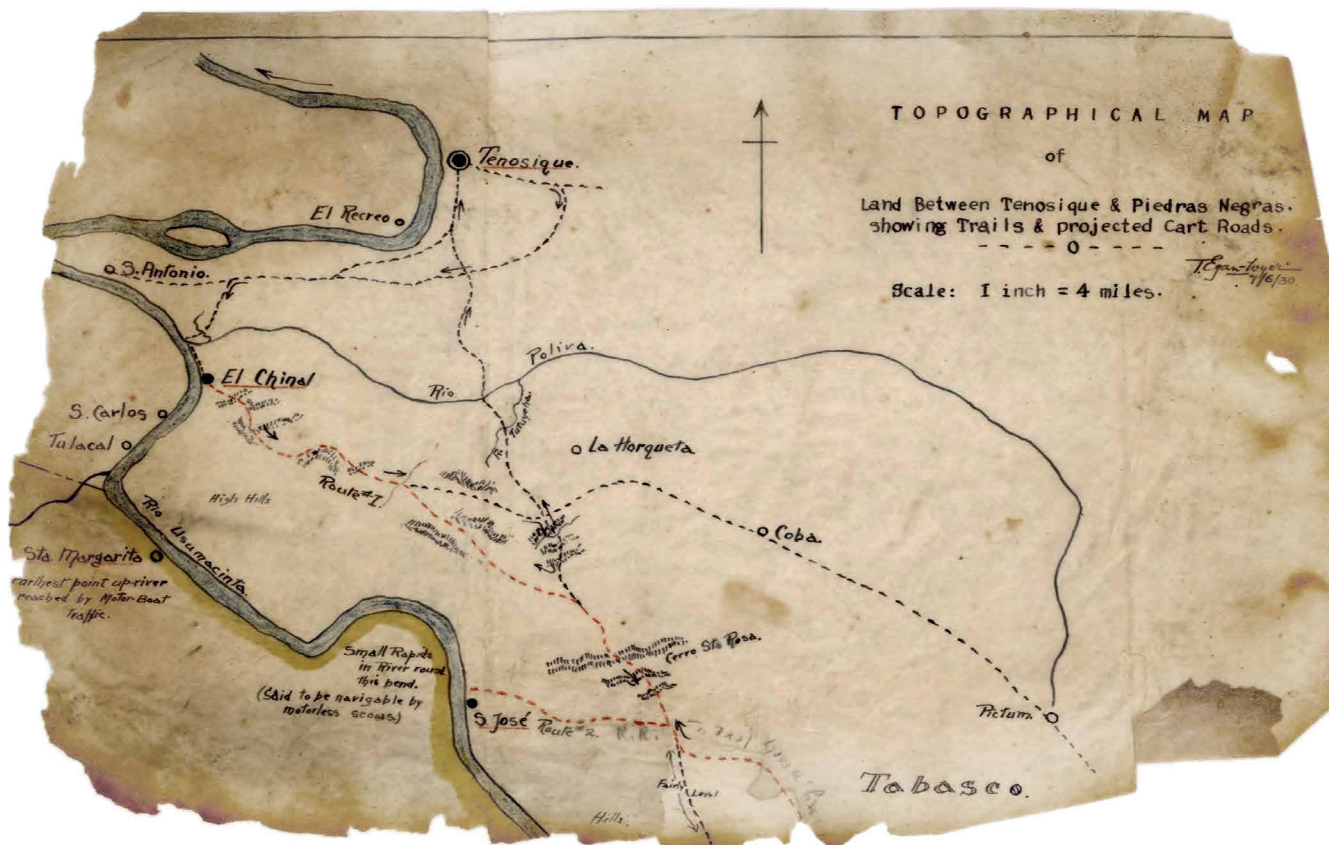 TOPOGRAPHICAL MAP
of
Land Between Tenosique & Piedras Negras.
showing Trails & projected Cart Roads.
- - - - O - - - -
7/6/30
Scale: I inch = 4 miles.
Tenosique.
El Recreo
S. Antonio.
Rio Poliva.
El Chinal
S. Carlos
Tulacal
La Horqueta
Route #I
High Hills
Rio Usumacinta.
Coba.
Sta. Margarita
Farthest point up-river
reached by Motor-Boat
Traffic.
Cerro Sta Rosa.
Small Rapids
in River round
this bend.
(Said to be navigable by
motorless scows)
S. José Route #2.
R.R.
Pictum.
Fairly Level
Tabasco.
Hills.